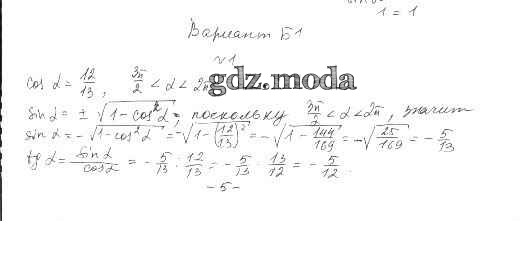 1 = 1
Вариант Б1
№1
cos α = 12/13, 3π/2 < α < 2π
gdz.moda
sin α = ± √(1 - cos² α), поскольку 3π/2 < α < 2π, значит
sin α = - √(1 - cos² α) = - √(1 - (12/13)²) = - √(1 - 144/169) = - √(25/169) = - 5/13
tg α = sin α / cos α = - 5/13 : 12/13 = - 5/13 · 13/12 = - 5/12.
- 5 -